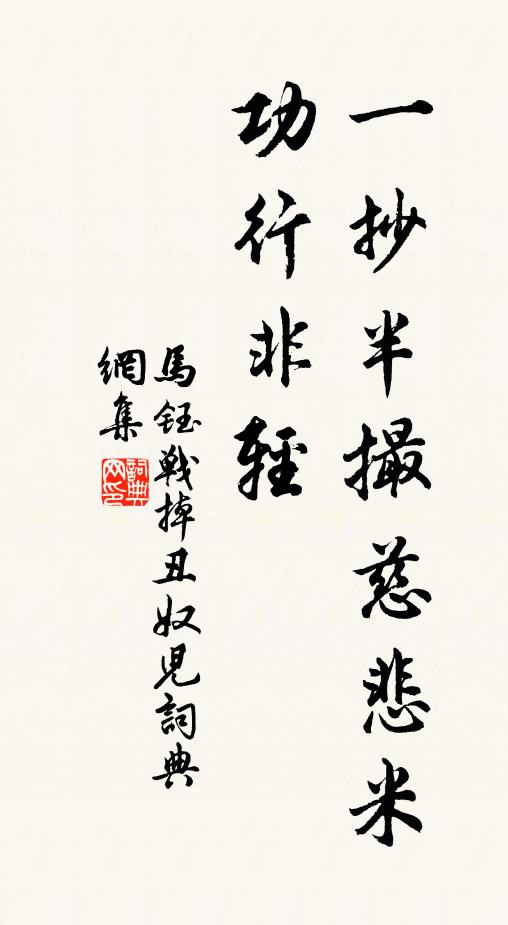 一抄半撮慈悲米
功行非輕
馬鈺戰掉丑奴兒詞典
網集
詞典
网印